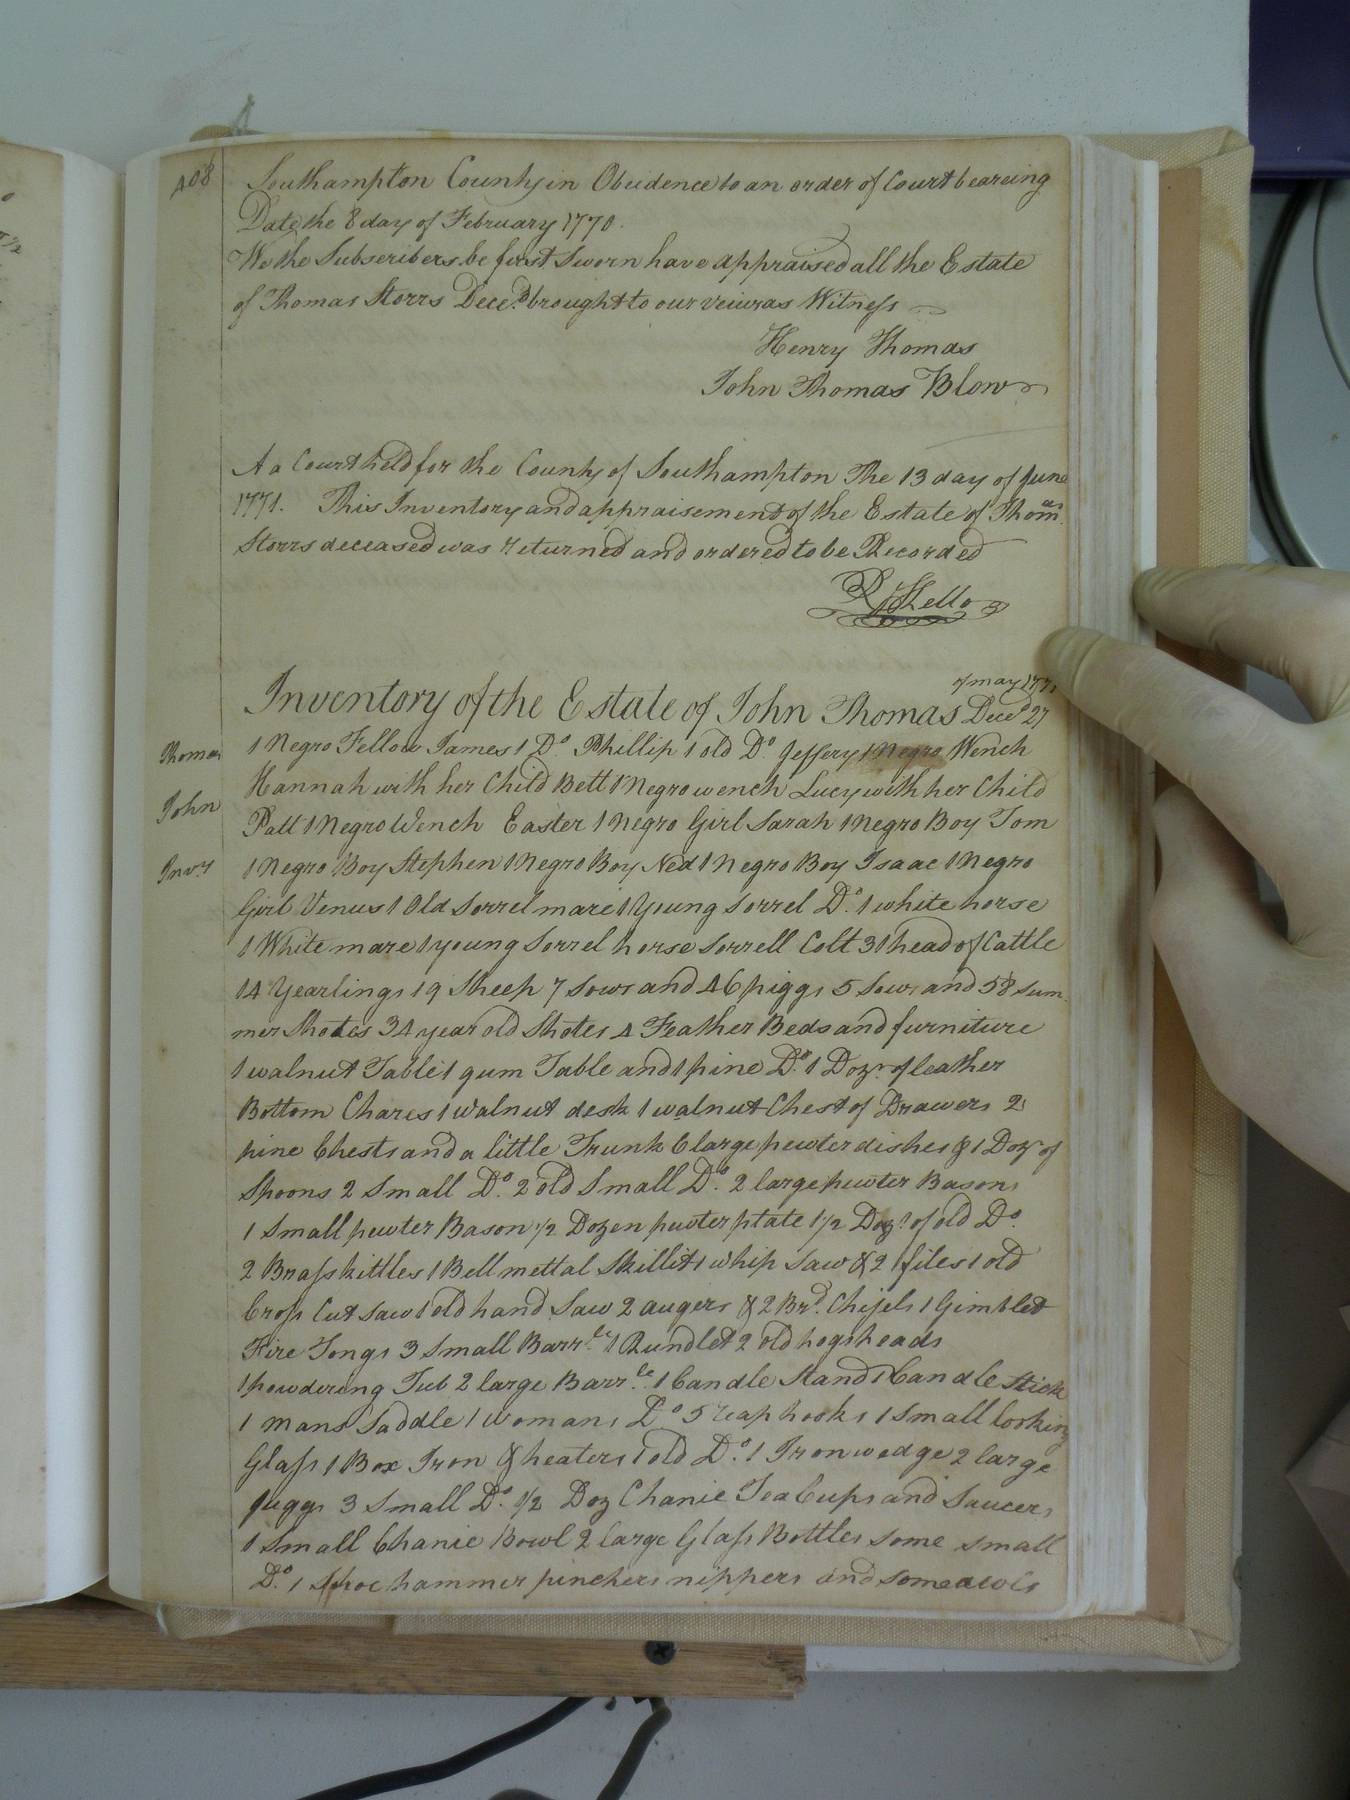 408
Southampton County in Obeidence to an order of Court beareing
Date the 8 day of February 1770.
We the Subscribers be first Sworn have appraised all the Estate
of Thomas Storrs Deced. brought to our veiw as Witness
Henry Thomas
John Thomas Blow
At a Court held for the County of Southampton The 13 day of June
1771. This Inventory and appraisement of the Estate of Thomas
Storrs deceased was returned and ordered to be Recorded
R Kello
of may 1771
Inventory of the Estate of John Thomas Decd 27
Thomas
1 Negro Fellow James 1 Do. Phillip 1 old Do. Jeffery 1 Negro Wench
Hannah with her Child Bett 1 Negro wench Lucy with her Child
John
Patt 1 Negro Wench Easter 1 Negro Girl Sarah 1 Negro Boy Tom
Invy
1 Negro Boy Stephen 1 Negro Boy Ned 1 Negro Boy Isaac 1 Negro
Girl Venus 1 Old Sorrel mare 1 Young Sorrel Do. 1 white horse
1 White mare 1 young Sorrel horse Sorrell Colt 31 head of Cattle
14 Yearlings 19 Sheep 7 Sows and 46 piggs 5 Sows and 58 Sum
mer Shotes 34 year old Shotes 4 Feather Beds and furniture
1 walnut Table 1 gum Table and 1 pine Do. 1 Dozn. of leather
Bottom Chares 1 walnut desk 1 walnut Chest of Drawers 2
pine Chests and a little Trunk 6 large pewter dishes & 1 Dozn of
Spoons 2 Small Do. 2 old Small Do. 2 large pewter Basons
1 Small pewter Bason 1/2 Dozen pewter plate 1 1/2 Dozn. of old Do.
2 Brass kittles 1 Bell mettal Skillit 1 whip Saw & 2 files 1 old
Cross Cut saw 1 old hand Saw 2 augers & 2 Brd. Chisels 1 Gimblet
Fire Tongs 3 Small Barrls 1 Rundlet 2 old hogsheads
1 powdering Tub 2 large Barrls 1 Candle Stand 1 Candle Stick
1 mans Saddle 1 womans Do 5 reap hooks 1 Small looking
Glass 1 Box Iron & heaters 1 old Do. 1 Iron wedge 2 large
juggs 3 Small Do. 1/2 Doz Chanie Tea Cups and Saucers
1 Small Chanie Bowl 2 large Glass Bottles some small
Do. 1 Shoe hammer pinchers nippers and some awls